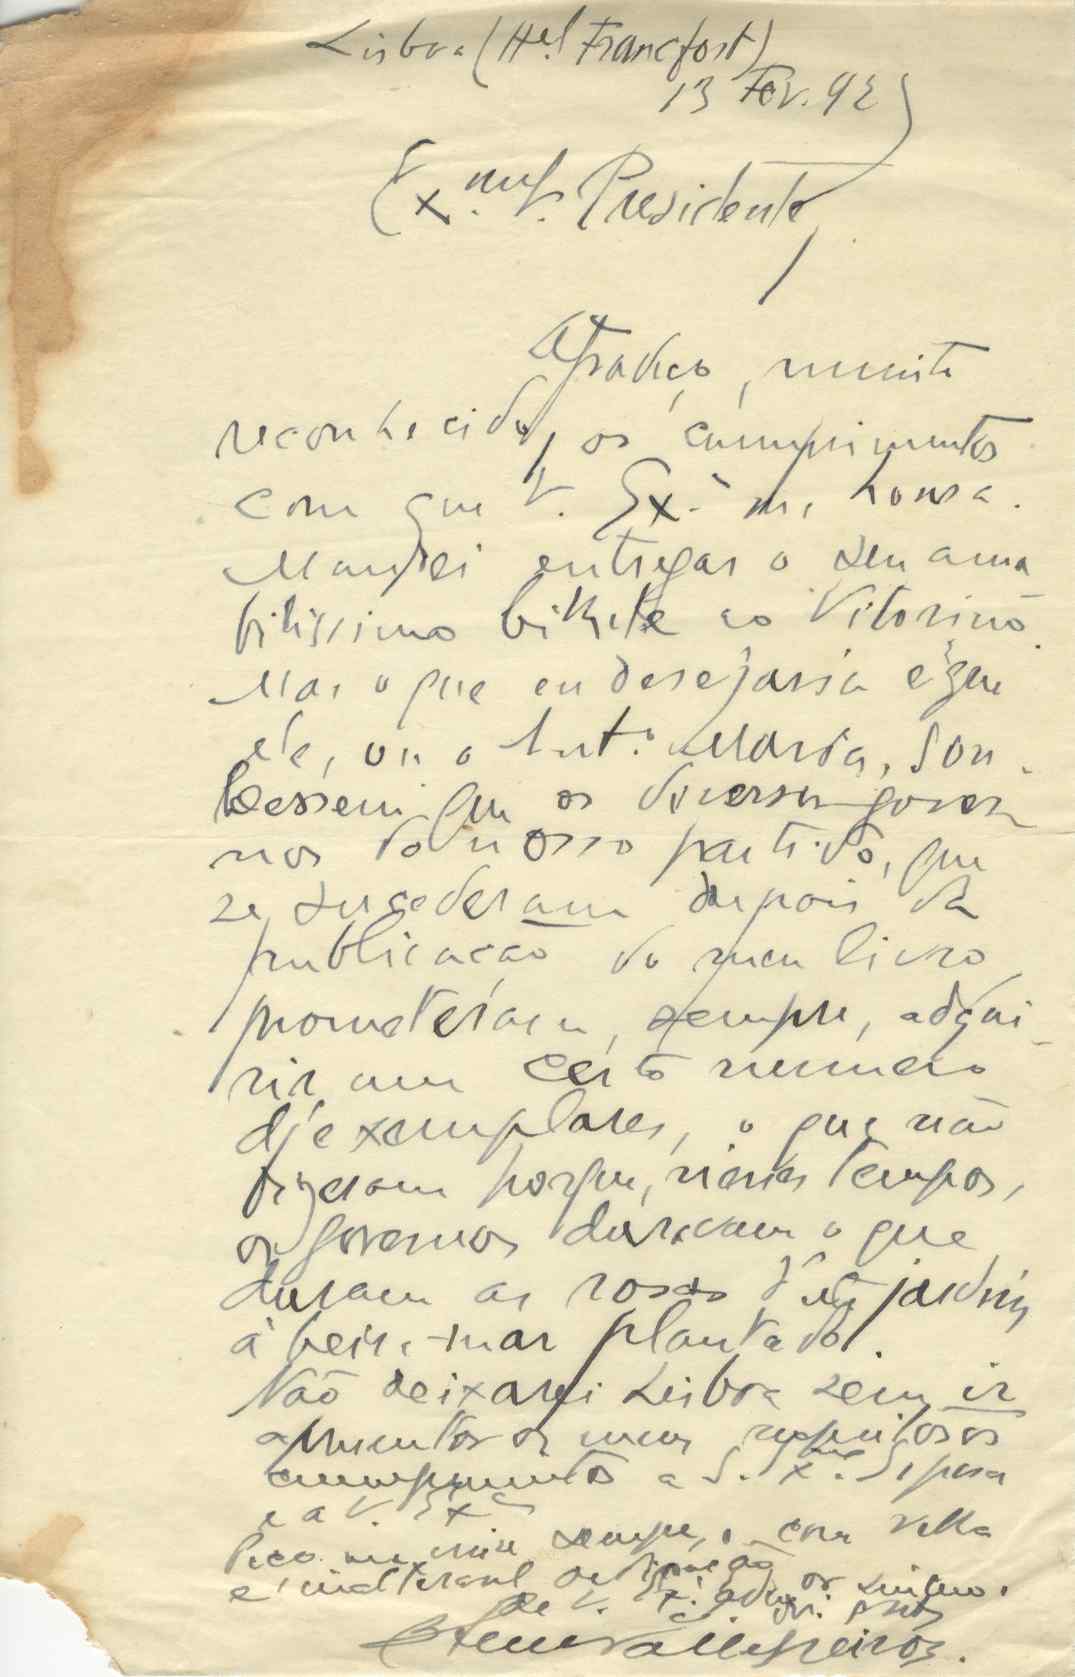 Lisboa (Hel Francfort)
13 Fev. 42
Exmº Sr. Presidente,
Agradeço, muito
reconhecido, os cumprimentos
com que V. Exª me honra.
Mandei entregar o seu ama
bilissimo bilhete ao Vitorino.
Mas o que eu desejaria é que
ele, ou o Antº Maria, sou-
bessem que os diversos gover
nos do nosso partido, que
se sucederam depois da
publicação do meu livro
prometeram, sempre, adqui-
rir um certo numero
d'exemplares, o que não
fizeram porque, nesses tempos,
os governos duravam o que
duram as rosas d'este jardim
á beira-mar plantado.
Não deixarei Lisboa sem ir
apresentar os meus respeitosos
cumprimentos a S. Exma Esposa
e a V. Exª
Peço me creia sempre, com velha
e inalteravel estimação
de V. Exª